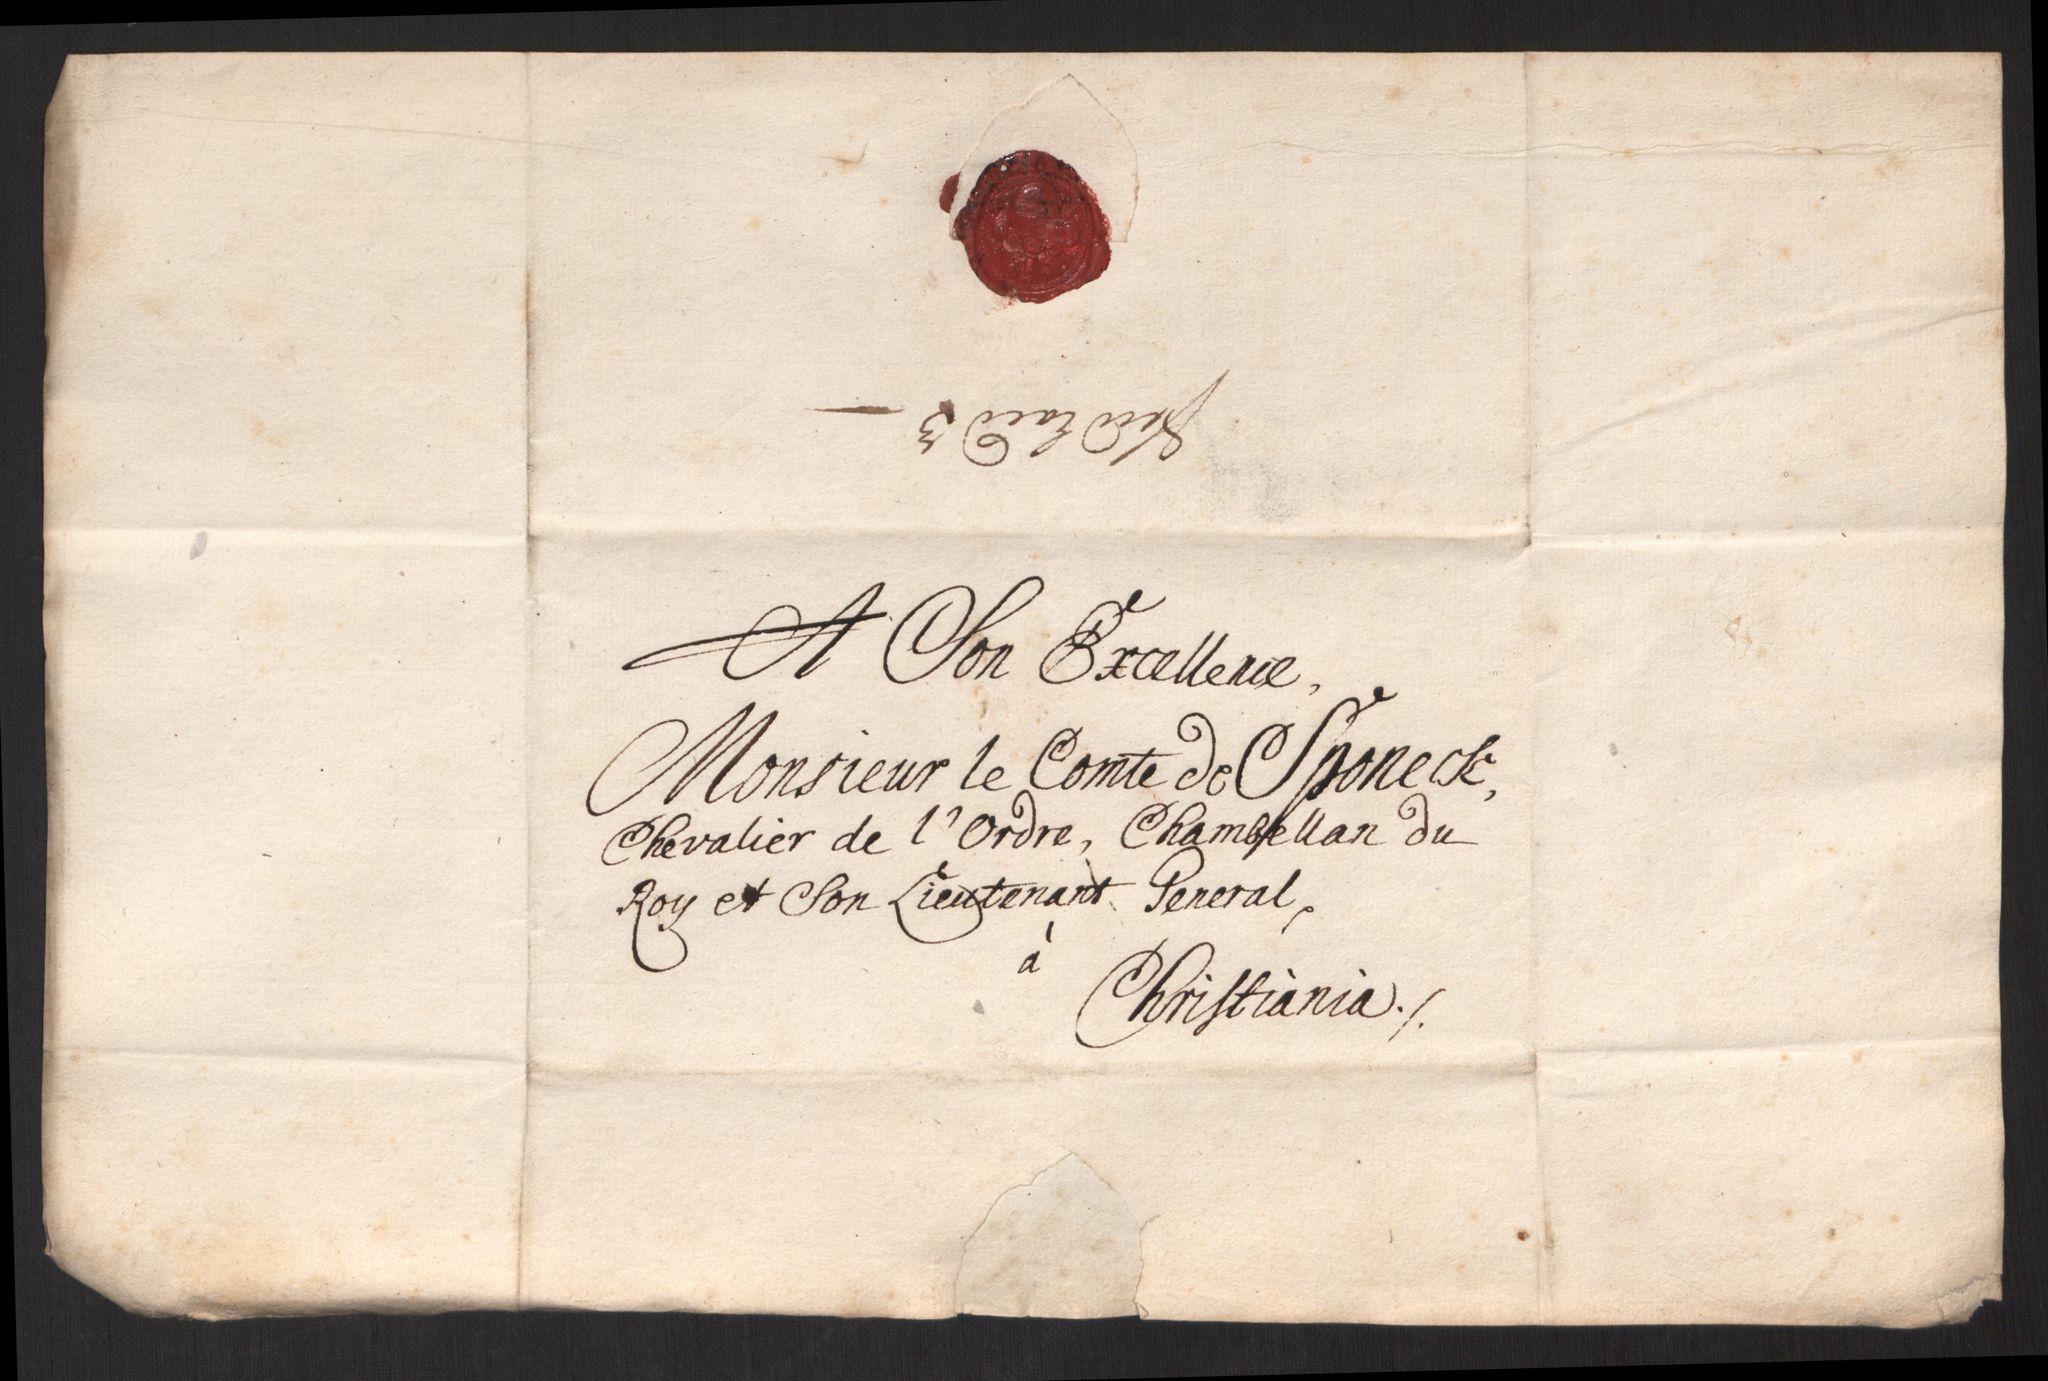 A Son Excellence,
Monsieur le Comte de Sponeck,
Chevalier de l'Ordre, Chambellan du
Roy et Son Lieutenant General,
à
Christiania ./.